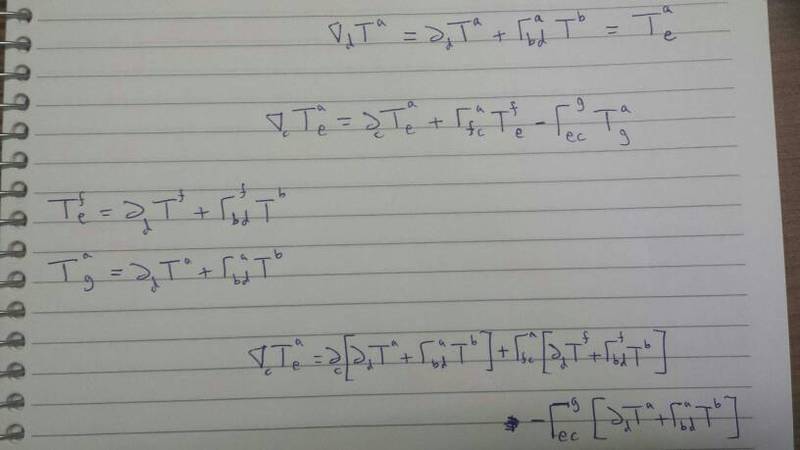 ∇_d T^a = ∂_d T^a + Γ^a_{bd} T^b = T^a_e
∇_c T^a_e = ∂_c T^a_e + Γ^a_{fc} T^f_e - Γ^g_{ec} T^a_g
T^f_e = ∂_d T^f + Γ^f_{bd} T^b
T^a_g = ∂_d T^a + Γ^a_{bd} T^b
∇_c T^a_e = ∂_c [∂_d T^a + Γ^a_{bd} T^b] + Γ^a_{fc} [∂_d T^f + Γ^f_{bd} T^b]
- Γ^g_{ec} [∂_d T^a + Γ^a_{bd} T^b]